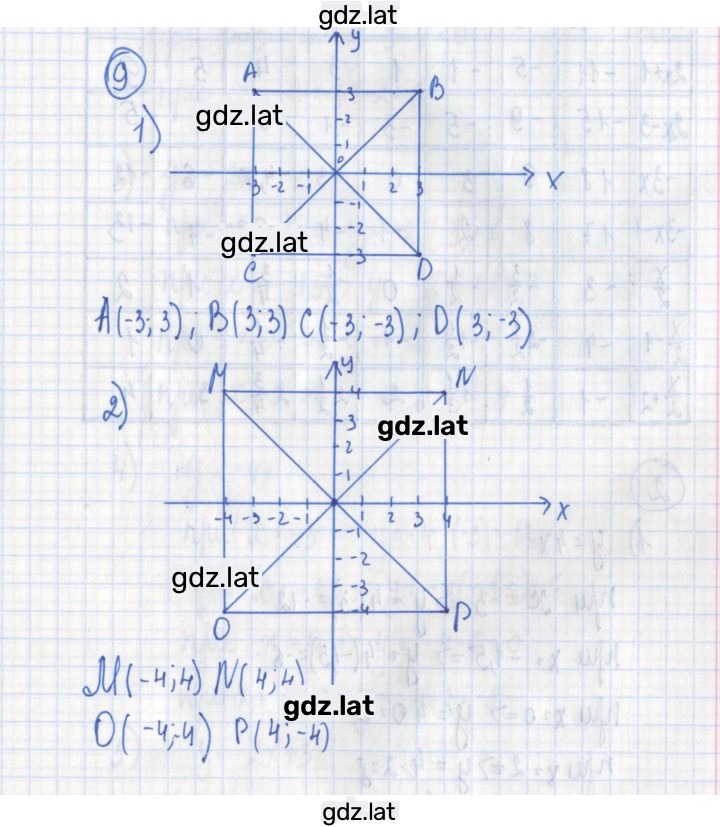 gdz.lat
9
y
A B
3
gdz.lat
1)
2
1
0
-3 -2 -1 1 2 3 x
-1
-2
gdz.lat
-3
C D
A(-3; 3); B(3; 3) C(-3; -3); D(3; -3)
y
M N
2)
4
gdz.lat
3
2
1
-4 -3 -2 -1 1 2 3 4 x
-1
-2
gdz.lat
-3
-4
O P
M(-4; 4) N(4; 4)
gdz.lat
O(-4; -4) P(4; -4)
gdz.lat